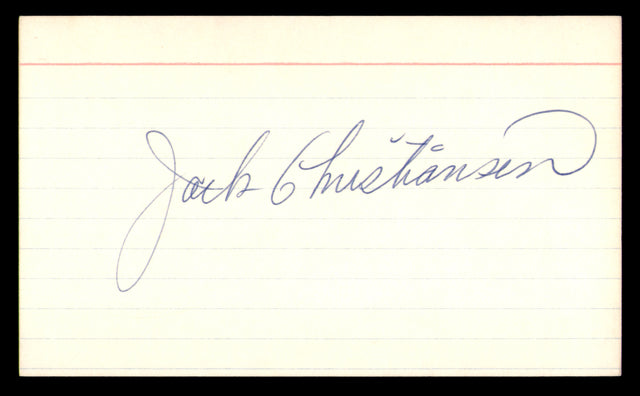 Jack Christiansen